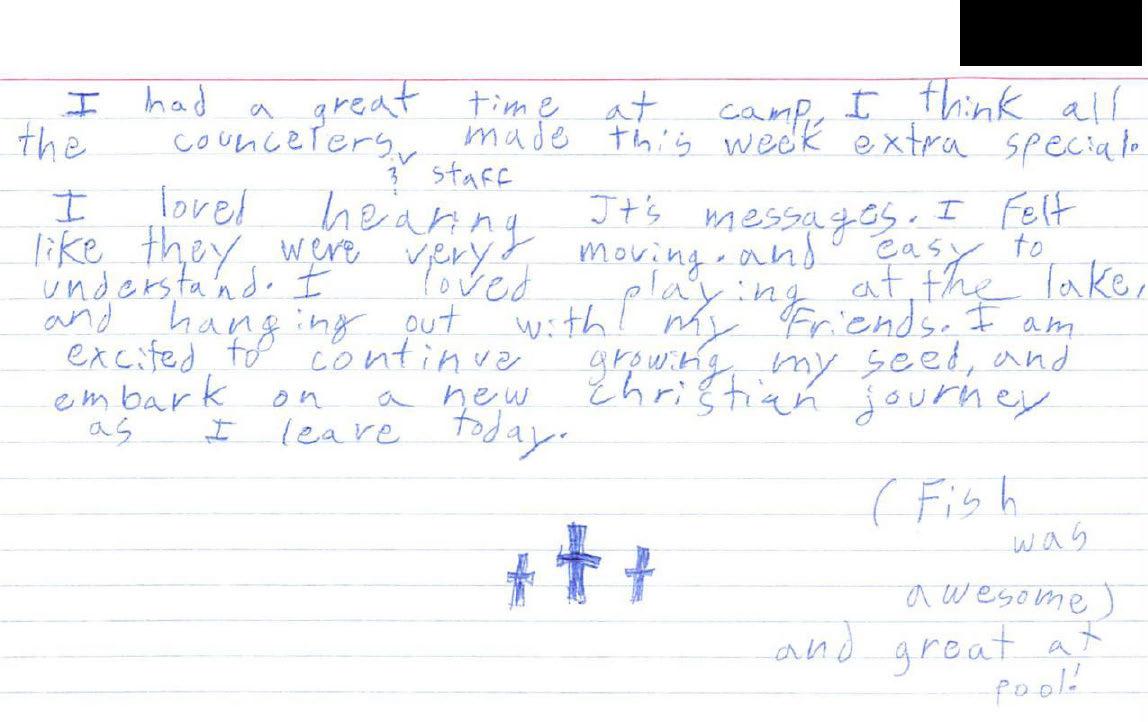 I had a great time at camp, I think all
the counceters made this week extra special.
& staff
I loved hearing JT's messages. I felt
like they were very moving. and easy to
understand. I loved playing at the lake,
and hanging out with my friends. I am
excited to continue growing my seed, and
embark on a new christian journey
as I leave today.
(Fish
was
awesome)
and great at
pool!